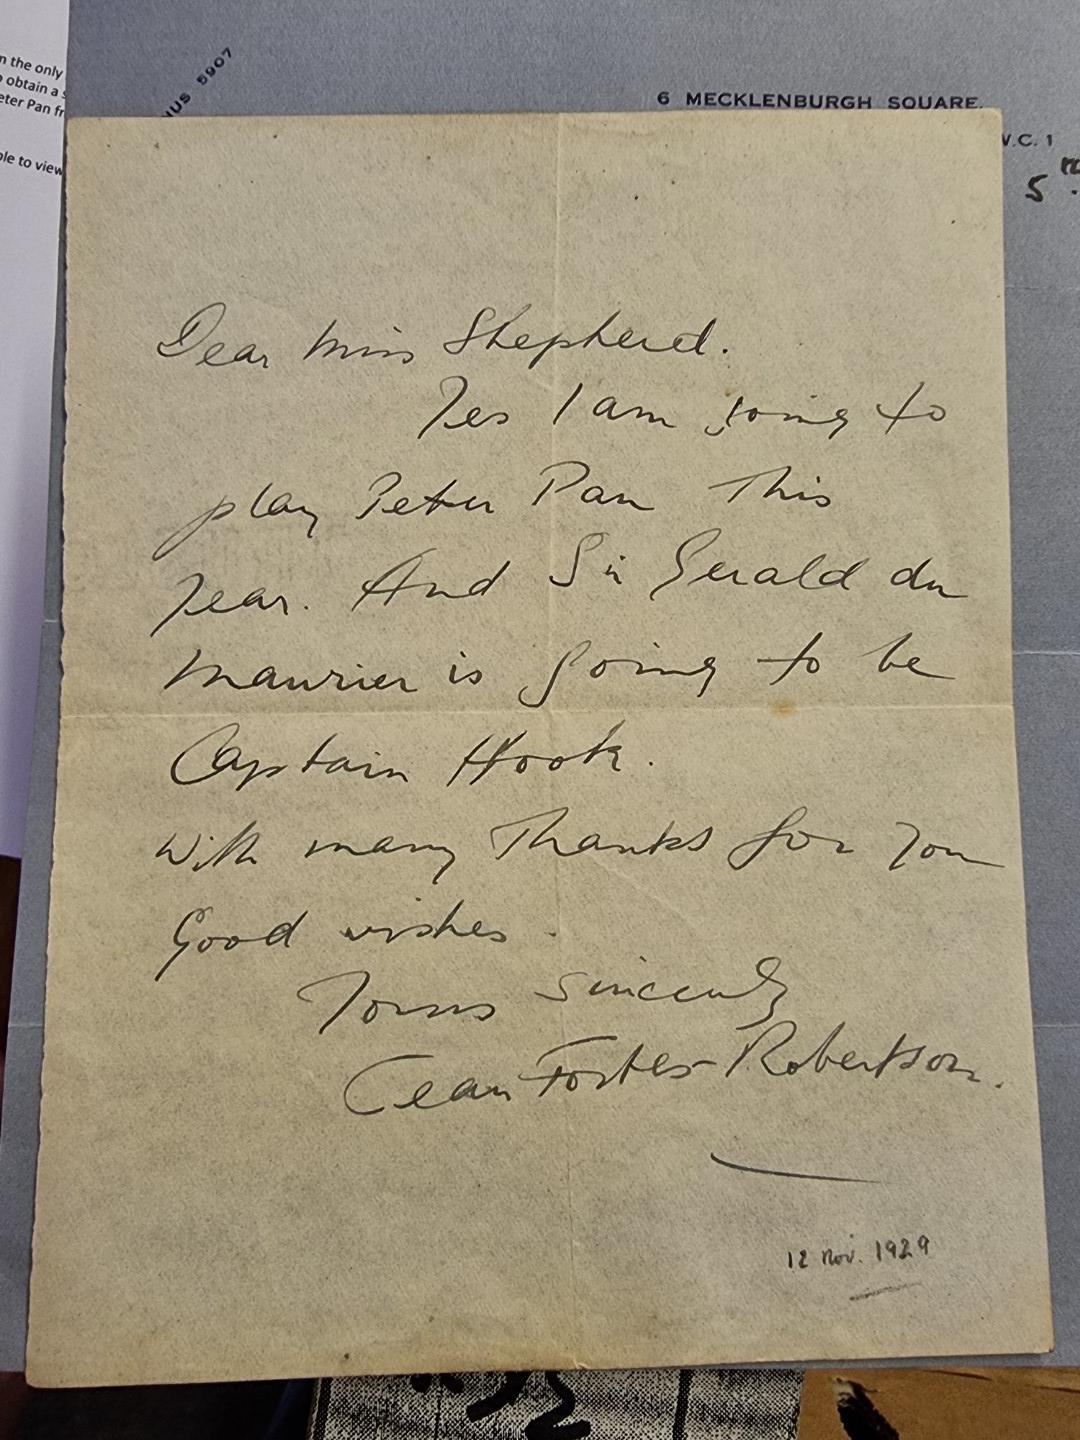 n the only
o obtain a s
eter Pan fr
ble to view
NUS 5907
6 MECKLENBURGH SQUARE.
W.C. 1
5
Dear Miss Shepherd.
Yes I am going to
play Peter Pan This
year. And Sir Gerald du
Maurier is going to be
Captain Hook.
With many Thanks for your
Good wishes.
Yours sincerely
Jean Forbes-Robertson.
12 Nov. 1929